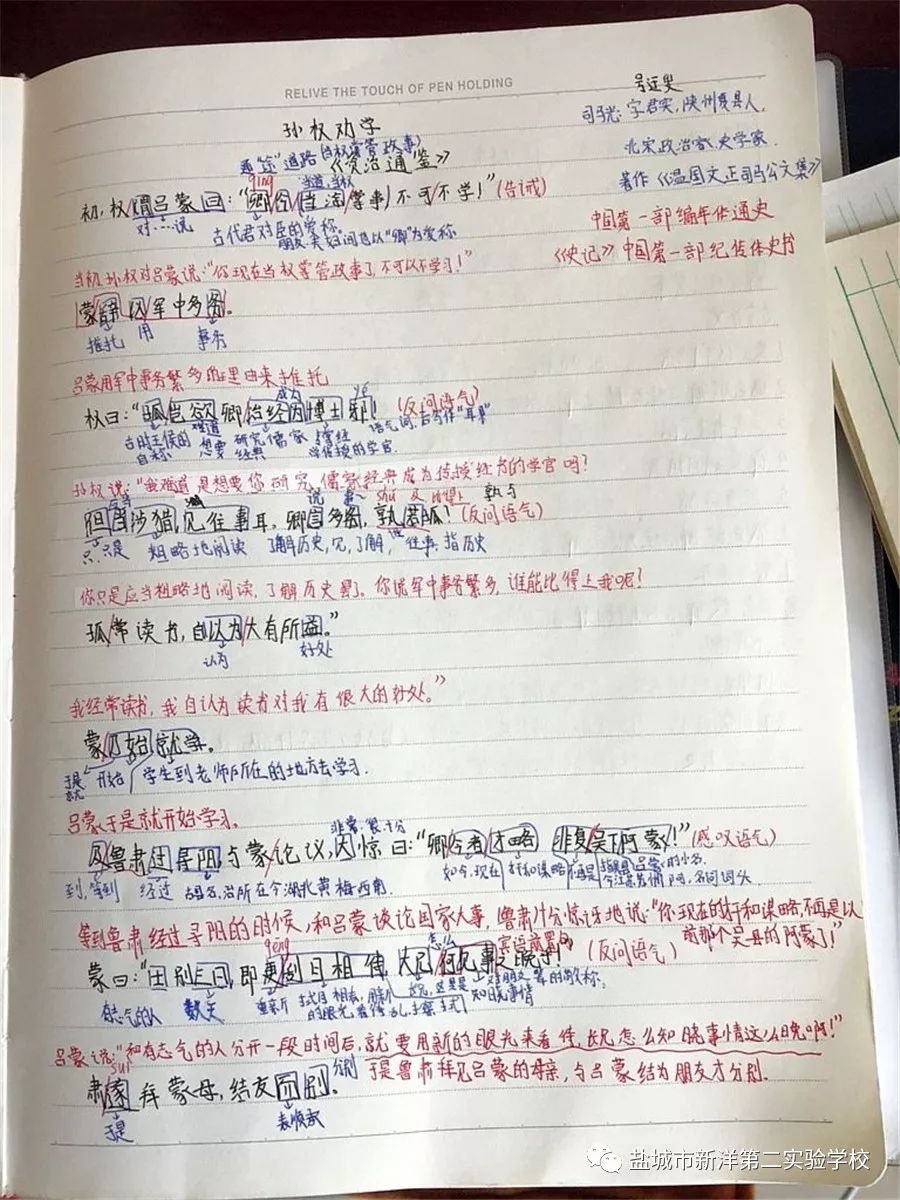 RELIVE THE TOUCH OF PEN HOLDING
孙权劝学
司马光:字君实,陕州夏县人,
道路
《资治通鉴》
北宋政治家,史学家
qīng
当道,当权
著作《温国文正司马公文集》
初,权谓吕蒙曰:“卿今当涂掌事,不可不学!”(告诫)
对……说
古代君对臣的爱称。
朋友、夫妇间也以“卿”为爱称
中国第一部编年体通史
《史记》中国第一部纪传体史书
当初,孙权对吕蒙说:“你现在当权掌管政事了,不可以不学习!”
蒙辞以军中多务。
推托 用 事务
吕蒙用军中事务繁多的理由来推托
成为
权曰:“孤岂欲卿治经为博士邪!(反问语气)
古时王侯的自称
难道
想要
研究儒家经典
学官
语气词
孙权说:“我难道是想要你研究儒家经典成为传授经书的学官吗?
应当
说 事务 shú 及 比得上 孰与
但当涉猎,见往事耳,卿言多务,孰若孤!(反问语气)
只,只是 粗略地阅读 了解历史,见,了解,往事:指历史
你只是应当粗略地阅读,了解历史罢了。你说军中事务繁多,谁能比得上我呢?
孤常读书,自以为大有所益。”
认为 好处
我经常读书,我自认为读书对我有很大的好处。”
蒙乃始就学。
于是就 开始 学生到老师所在的地方去学习.
吕蒙于是就开始学习。
非常,很,十分
及鲁肃过寻阳,与蒙论议,大惊曰:“卿今者才略,非复吴下阿蒙!”(感叹语气)
到,等到 经过 古县名,治所在今湖北黄梅西南.
如今,现在 才干和谋略 不再是
阿,名词词头
等到鲁肃经过寻阳的时候,和吕蒙谈论国家大事,鲁肃十分惊讶地说:“你现在的才干和谋略,不再是以
前那个吴县的阿蒙了!”
gēng 怎么 宾语前置句
蒙曰:“士别三日,即更刮目相待,大兄何见事之晚乎!”(反问语气)
有志气的人 数天 重新 拭目相看,用新的眼光看待
知晓事情
吕蒙说:“和有志气的人分开一段时间后,就要用新的眼光来看待,长兄怎么知晓事情这么晚啊!”
suì
肃遂拜蒙母,结友而别。
分别
于是鲁肃拜见吕蒙的母亲,与吕蒙结为朋友才分别.
于是
表顺承
盐城市新洋第二实验学校